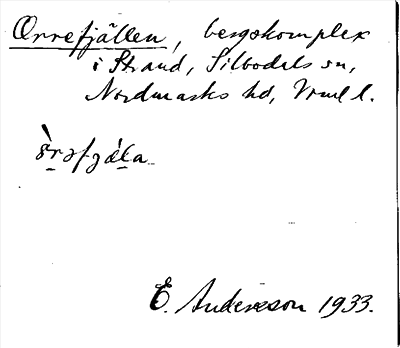 Orrefjällen, bergskomplex
i Strand, Silbodals sn,
Nordmarks hd, Vrml l.
E. Andersson 1933.